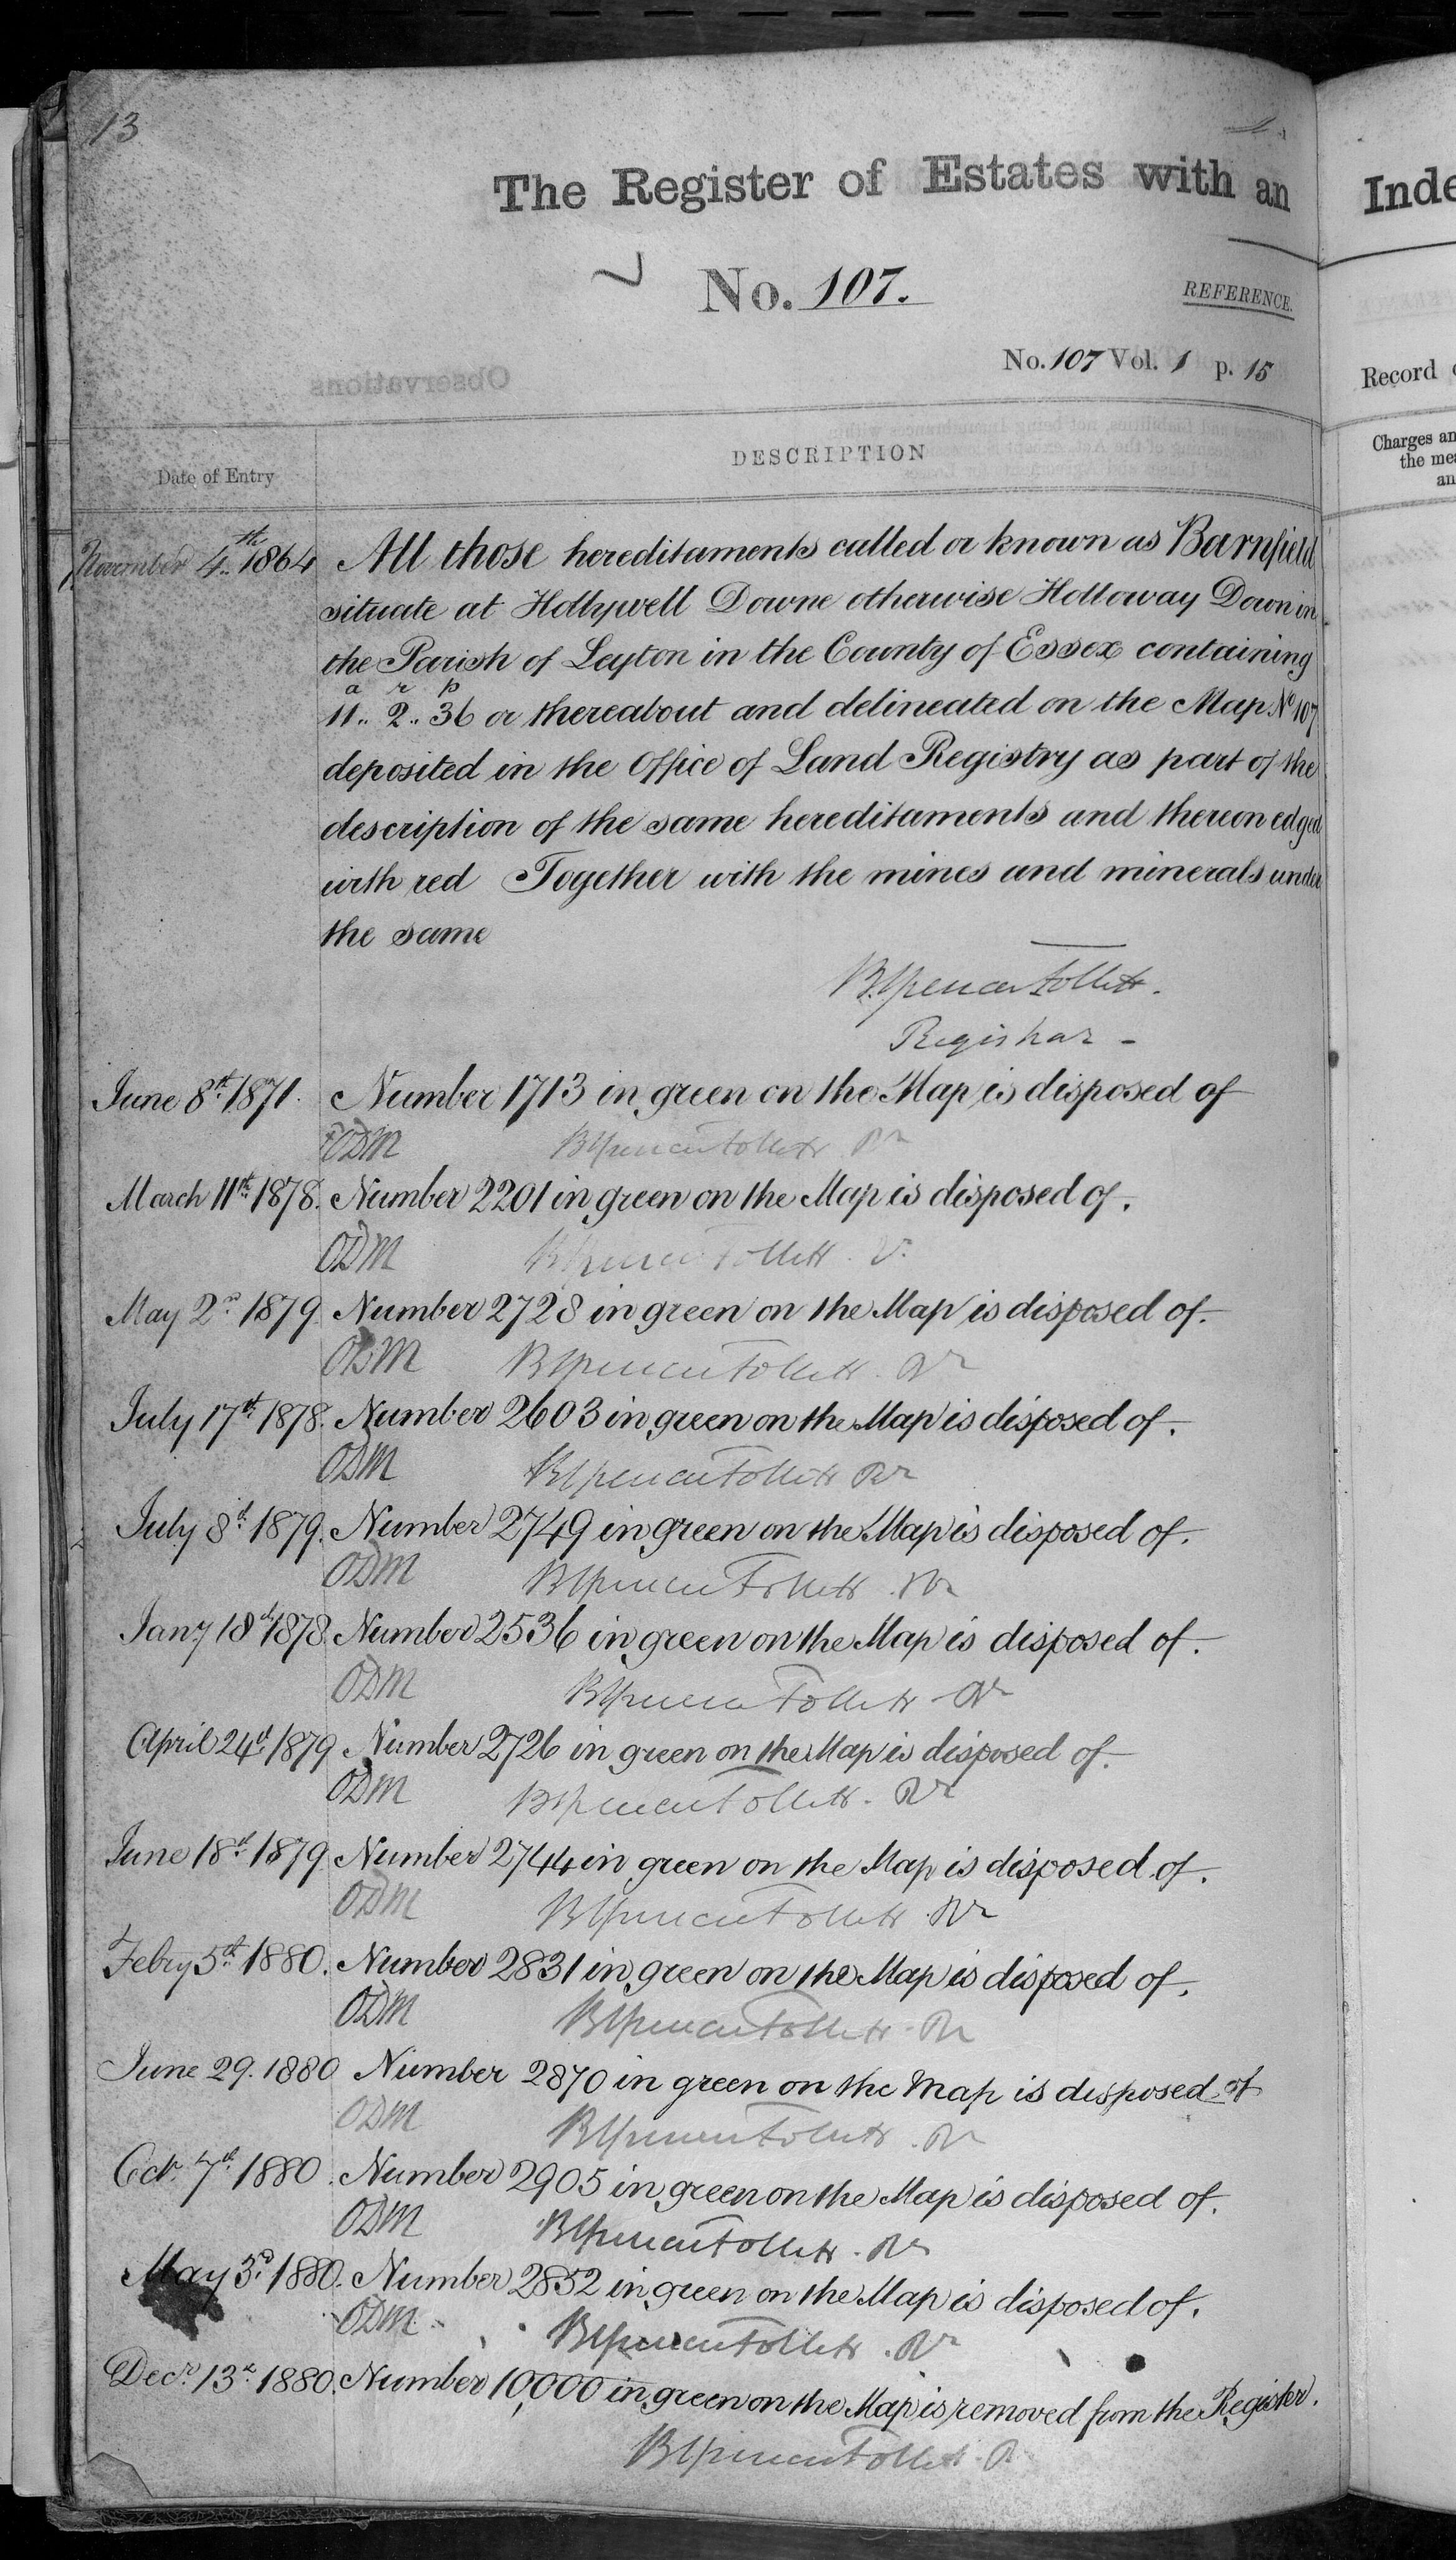 13
The Register of Estates with an
Inde
No. 107.
REFERENCE.
No. 107 Vol. 1 p. 15
Record
Observations
DESCRIPTION
Date of Entry
Charges an
the mea
an
November 4th 1864 All those hereditaments called or known as Barnfield
situate at Hollywell Downe otherwise Holloway Down in
the Parish of Leyton in the County of Essex containing
a r p
11.. 2.. 36 or thereabout and delineated on the Map No 107
deposited in the Office of Land Registry as part of the
description of the same hereditaments and thereon edged
with red Together with the mines and minerals under
the same
B Spencer Follett.
Registrar -
June 8th 1871. Number 1713 in green on the Map is disposed of
ODM B Spencer Follett Rr
March 11th 1878. Number 2201 in green on the Map is disposed of.
ODM B Spencer Follett
May 2nd 1879 Number 2728 in green on the Map is disposed of.
ODM B Spencer Follett. Rr
July 17th 1878. Number 2603 in green on the Map is disposed of.
ODM B Spencer Follett Rr
July 8th 1879. Number 2749 in green on the Map is disposed of.
ODM B Spencer Follett. Rr
Jany 18th 1878. Number 2536 in green on the Map is disposed of.
ODM B Spencer Follett Rr
April 24th 1879 Number 2726 in green on the Map is disposed of.
ODM B Spencer Follett. Rr
June 18th 1879 Number 2744 in green on the Map is disposed of.
ODM B Spencer Follett. Rr
Febry 5th 1880. Number 2831 in green on the Map is disposed of.
ODM B Spencer Follett. Rr
June 29. 1880 Number 2870 in green on the Map is disposed of
ODM B Spencer Follett. Rr
Octr 7th 1880. Number 2905 in green on the Map is disposed of.
ODM B Spencer Follett. Rr
May 3rd 1880. Number 2852 in green on the Map is disposed of.
ODM B Spencer Follett. Rr
Decr 13th 1880. Number 10,000 in green on the Map is removed from the Register.
B Spencer Follett. R